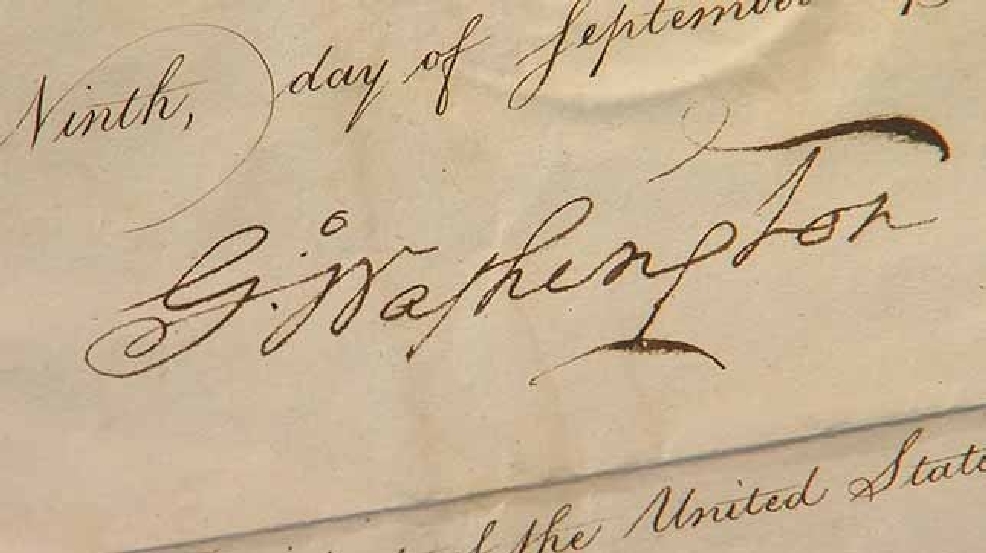 Ninth, day of September
G. Washington
of the United State